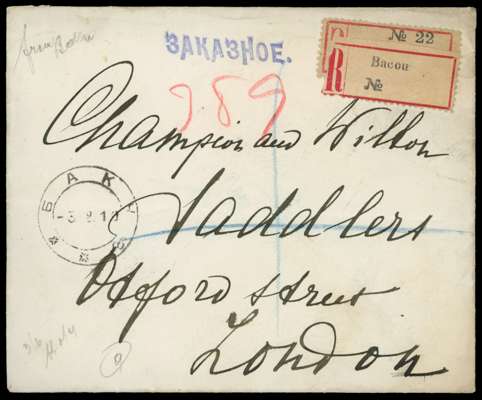 from
ЗАКАЗНОЕ.
№ 22
R
Bacou
№
789
Champion and Wilton
Saddlers
Oxford street
London
БАКУ
-3.2.10